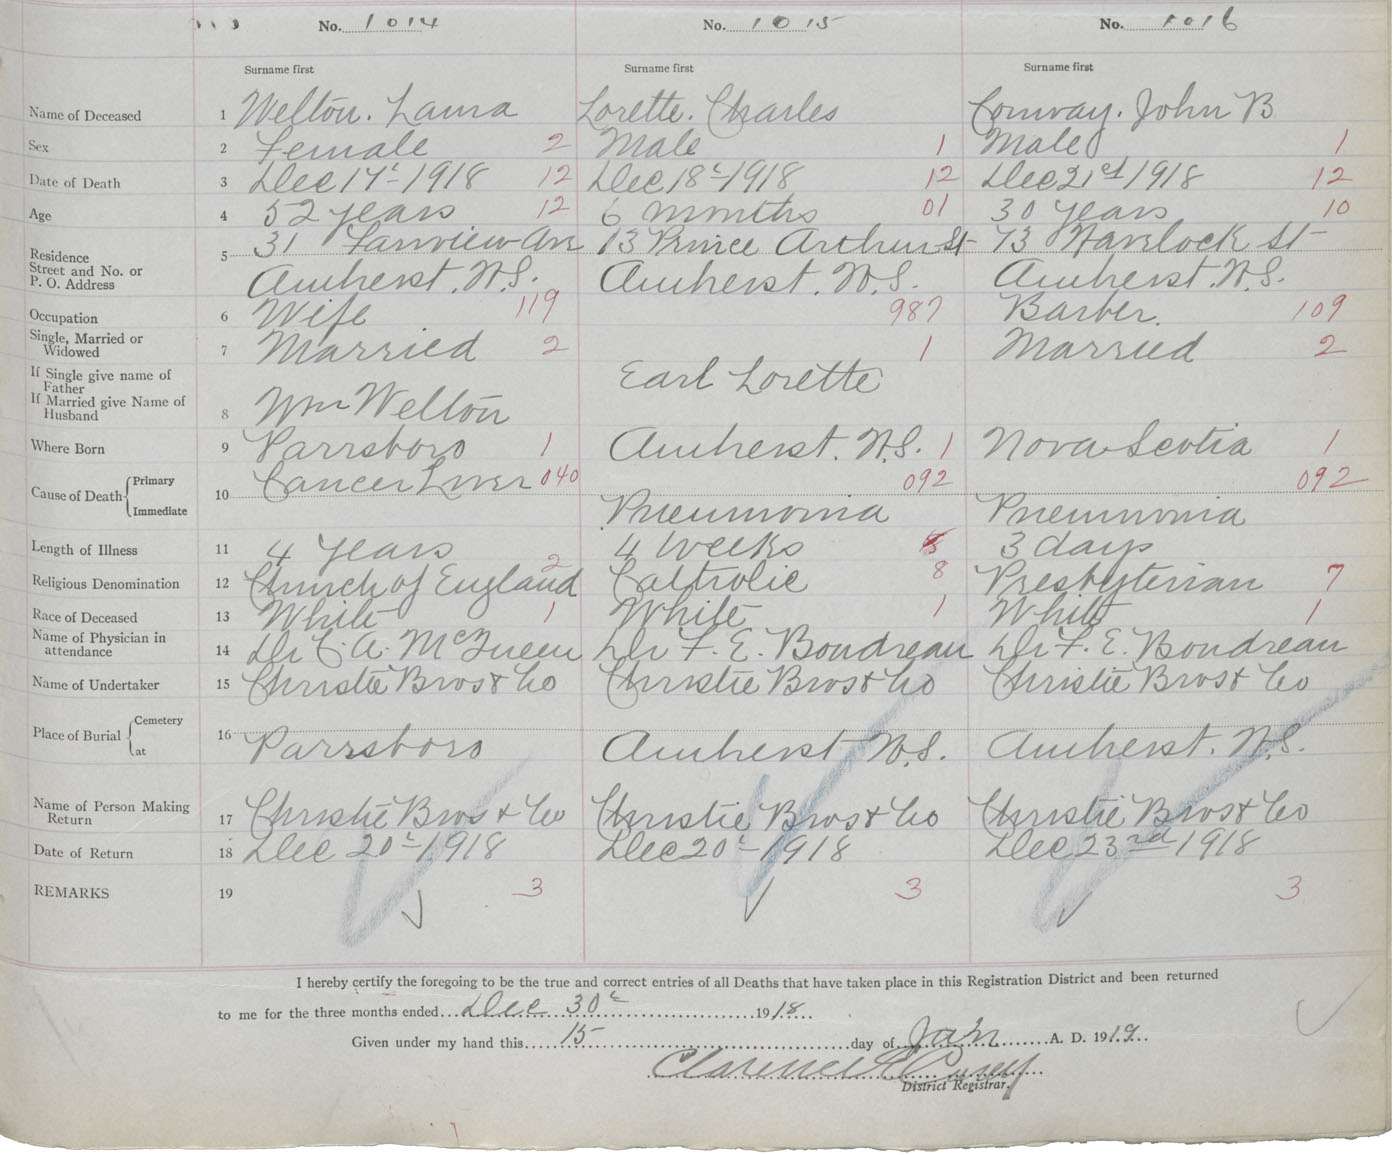 No. 1014 No. 1015 No. 1016
Surname first Surname first Surname first
Name of Deceased 1 Welton. Laura Lorette. Charles Conway. John B
Sex 2 Female 2 Male 1 Male 1
Date of Death 3 Dec 17th 1918 12 Dec 18th 1918 12 Dec 21st 1918 12
Age 4 52 years 12 6 months 01 30 years 10
Residence 5 31 Fairview Ave 13 Prince Arthur St 73 Havelock St
Street and No. or
P. O. Address Amherst. N.S. Amherst. N.S. Amherst. N.S.
Occupation 6 Wife 119 987 Barber. 109
Single, Married or
Widowed 7 Married 2 1 Married 2
If Single give name of
Father Earl Lorette
If Married give Name of
Husband 8 Wm Welton
Where Born 9 Parrsboro 1 Amherst. N.S. 1 Nova Scotia 1
Cause of Death Primary 10 Cancer Liver 040 092 092
Immediate Pneumonia Pneumonia
Length of Illness 11 4 years 4 weeks 3 days
Religious Denomination 12 Church of England 2 Catholic 8 Presbyterian 7
Race of Deceased 13 White 1 White 1 White 1
Name of Physician in
attendance 14 Dr C. A. McQueen Dr F. E. Boudreau Dr F. E. Boudreau
Name of Undertaker 15 Christie Bros & Co Christie Bros & Co Christie Bros & Co
Place of Burial Cemetery 16
at Parrsboro Amherst N.S. Amherst. N.S.
Name of Person Making
Return 17 Christie Bros & Co Christie Bros & Co Christie Bros & Co
Date of Return 18 Dec 20th 1918 Dec 20th 1918 Dec 23rd 1918
REMARKS 19 3 3 3
I hereby certify the foregoing to be the true and correct entries of all Deaths that have taken place in this Registration District and been returned
to me for the three months ended Dec 30th 1918
Given under my hand this 15 day of Jan A. D. 1919
Clarence
District Registrar.